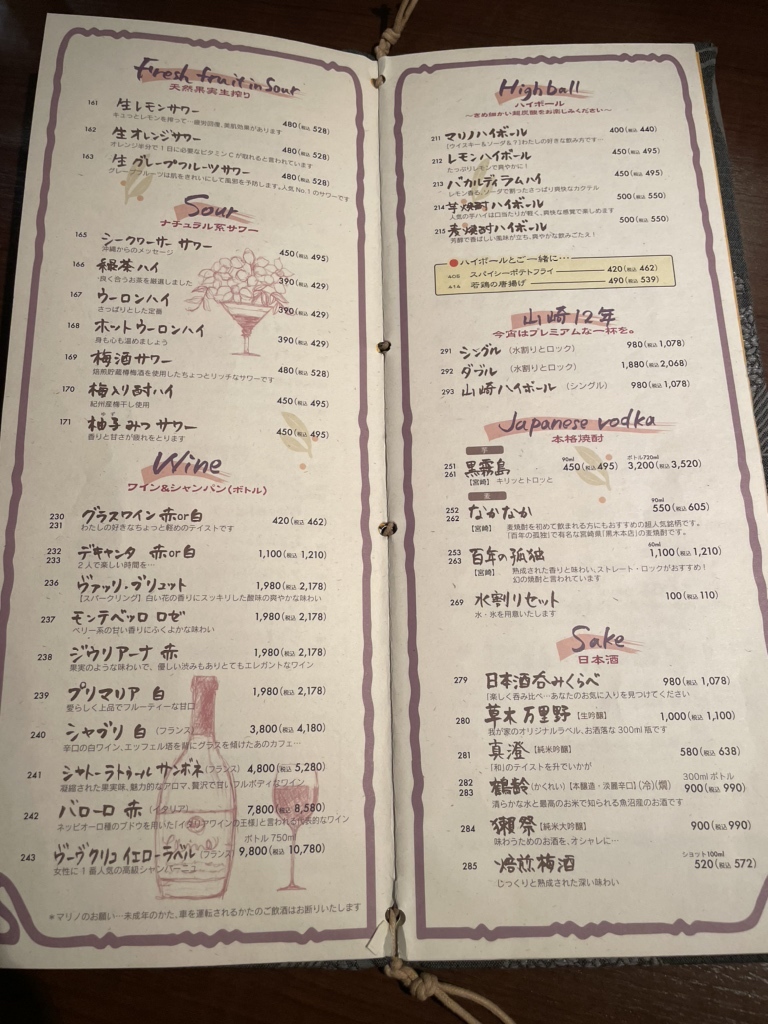 Fresh fruit in Sour
天然果実生搾り
161 生レモンサワー 480(税込 528)
キュッとレモンを搾って…疲労回復、美肌効果があります
162 生オレンジサワー 480(税込 528)
オレンジ半分で1日に必要なビタミンCが取れると言われています
163 生グレープフルーツサワー 480(税込 528)
グレープフルーツは肌をきれいにして風邪を予防します。人気No.1のサワーです
Sour
ナチュラル系サワー
165 シークワーサーサワー 450(税込 495)
沖縄からのメッセージ
166 緑茶ハイ 390(税込 429)
良く合うお茶を厳選しました
167 ウーロンハイ 390(税込 429)
さっぱりとした定番
168 ホットウーロンハイ 390(税込 429)
身も心も温めましょう
169 梅酒サワー 480(税込 528)
焙煎貯蔵樽梅酒を使用したちょっとリッチなサワーです
170 梅入り酎ハイ 450(税込 495)
紀州産梅干し使用
171 柚子みつサワー 450(税込 495)
香りと甘さが疲れをとります
Wine
ワイン&シャンパン(ボトル)
230
231 グラスワイン 赤or白 420(税込 462)
わたしの好きなちょっと軽めのテイストです
232
233 デキャンタ 赤or白 1,100(税込 1,210)
2人で楽しい時間を…
236 ヴァッリ・ブリュット 1,980(税込 2,178)
【スパークリング】白い花の香りにスッキリした酸味の爽やかな味わい
237 モンテベッロ ロゼ 1,980(税込 2,178)
ベリー系の甘い香りにふくよかな味わい
238 ジウリアーナ 赤 1,980(税込 2,178)
果実のような味わいで、優しい渋みもありとてもエレガントなワイン
239 プリマリア 白 1,980(税込 2,178)
愛らしく上品でフルーティーな甘口
240 シャブリ 白 (フランス) 3,800(税込 4,180)
辛口の白ワイン、エッフェル塔を肴にグラスを傾けたあのカフェ…
241 シャトーラトゥールサンボネ (フランス) 4,800(税込 5,280)
凝縮された果実味、魅力的なアロマ、贅沢で甘いフルボディなワイン
242 バローロ 赤 (イタリア) 7,800(税込 8,580)
ネッビオーロ種のブドウを用いた「イタリアワインの王様」と言われる代表的なワイン
ボトル 750ml
243 ヴーヴクリコ イエローラベル (フランス) 9,800(税込 10,780)
女性に1番人気の高級シャンパーニュ
*マリノのお願い…未成年のかた、車を運転されるかたのご飲酒はお断りいたします
Highball
ハイボール
〜きめ細かい超炭酸をお楽しみください〜
211 マリノハイボール 400(税込 440)
[ウイスキー&ソーダ&?]わたしの好きな飲み方です…
212 レモンハイボール 450(税込 495)
たっぷりレモンで爽やかに!
213 バカルディラムハイ 450(税込 495)
レモン香るソーダで割ったさっぱり爽快なカクテル
214 芋焼酎ハイボール 500(税込 550)
人気の芋ハイは口当たりが軽く、爽快な感覚で楽しめます
215 麦焼酎ハイボール 500(税込 550)
芳醇で香ばしい風味が立ち、爽やかな飲みごたえ!
●ハイボールとご一緒に…
408 スパイシーポテトフライ 420(税込 462)
414 若鶏の唐揚げ 490(税込 539)
山崎12年
今宵はプレミアムな一杯を。
291 シングル (水割りとロック) 980(税込 1,078)
292 ダブル (水割りとロック) 1,880(税込 2,068)
293 山崎ハイボール (シングル) 980(税込 1,078)
Japanese vodka
本格焼酎
芋
90ml ボトル720ml
251
261 黒霧島 450(税込 495) 3,200(税込 3,520)
【宮崎】 キリッとトロッと
麦
90ml
252
262 なかなか 550(税込 605)
【宮崎】 麦焼酎を初めて飲まれる方にもおすすめの超人気銘柄です。
「百年の孤独」で有名な宮崎県「黒木本店」の麦焼酎です。
60ml
253
263 百年の孤独 1,100(税込 1,210)
【宮崎】 熟成された香りと味わい、ストレート・ロックがおすすめ!
幻の焼酎と言われています
269 水割りセット 100(税込 110)
水・氷を用意いたします
Sake
日本酒
279 日本酒呑みくらべ 980(税込 1,078)
「楽しく呑み比べ…あなたのお気に入りを見つけてください
280 草木万里野 【生吟醸】 1,000(税込 1,100)
我が家のオリジナルラベル、お洒落な300ml瓶です
281 真澄 【純米吟醸】 580(税込 638)
「和」のテイストを升でいかが
300ml ボトル
282
283 鶴齢 (かくれい) 【本醸造・淡麗辛口】 (冷)(燗) 900(税込 990)
清らかな水と最高のお米で知られる魚沼産のお酒です
284 獺祭 【純米大吟醸】 900(税込 990)
味わうためのお酒を、オシャレに…
ショット100ml
285 焙煎梅酒 520(税込 572)
じっくりと熟成された深い味わい